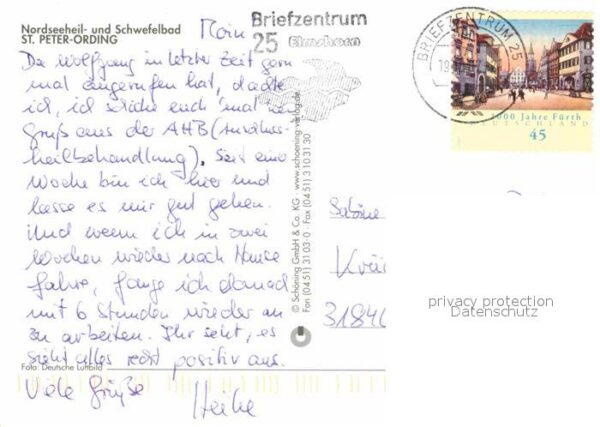 Nordseeheil- und Schwefelbad
ST. PETER-ORDING
Moin
Da Wolfgang in letzter Zeit gern
mal angerufen hat, dachte
ich, ich schicke euch 'mal nen
Gruß aus der AHB (Anschluss-
heilbehandlung). Seit einer
Woche bin ich hier und
lasse es mir gut gehen.
Und wenn ich in zwei
Wochen wieder nach Hause
fahre, fange ich danach
mit 6 Stunden wieder an
zu arbeiten. Ihr seht, es
sieht alles recht positiv aus.
Foto: Deutsche Luftbild
Viele Grüße
Heike
© Schöning GmbH & Co. KG · www.schoening-verlag.de
Fon (04 51) 31 03 0 · Fax (04 51) 3 10 31 30
Briefzentrum
25 Elmshorn
BRIEFZENTRUM 25
1000 Jahre Fürth
DEUTSCHLAND
45
Sabine
31840
privacy protection
Datenschutz